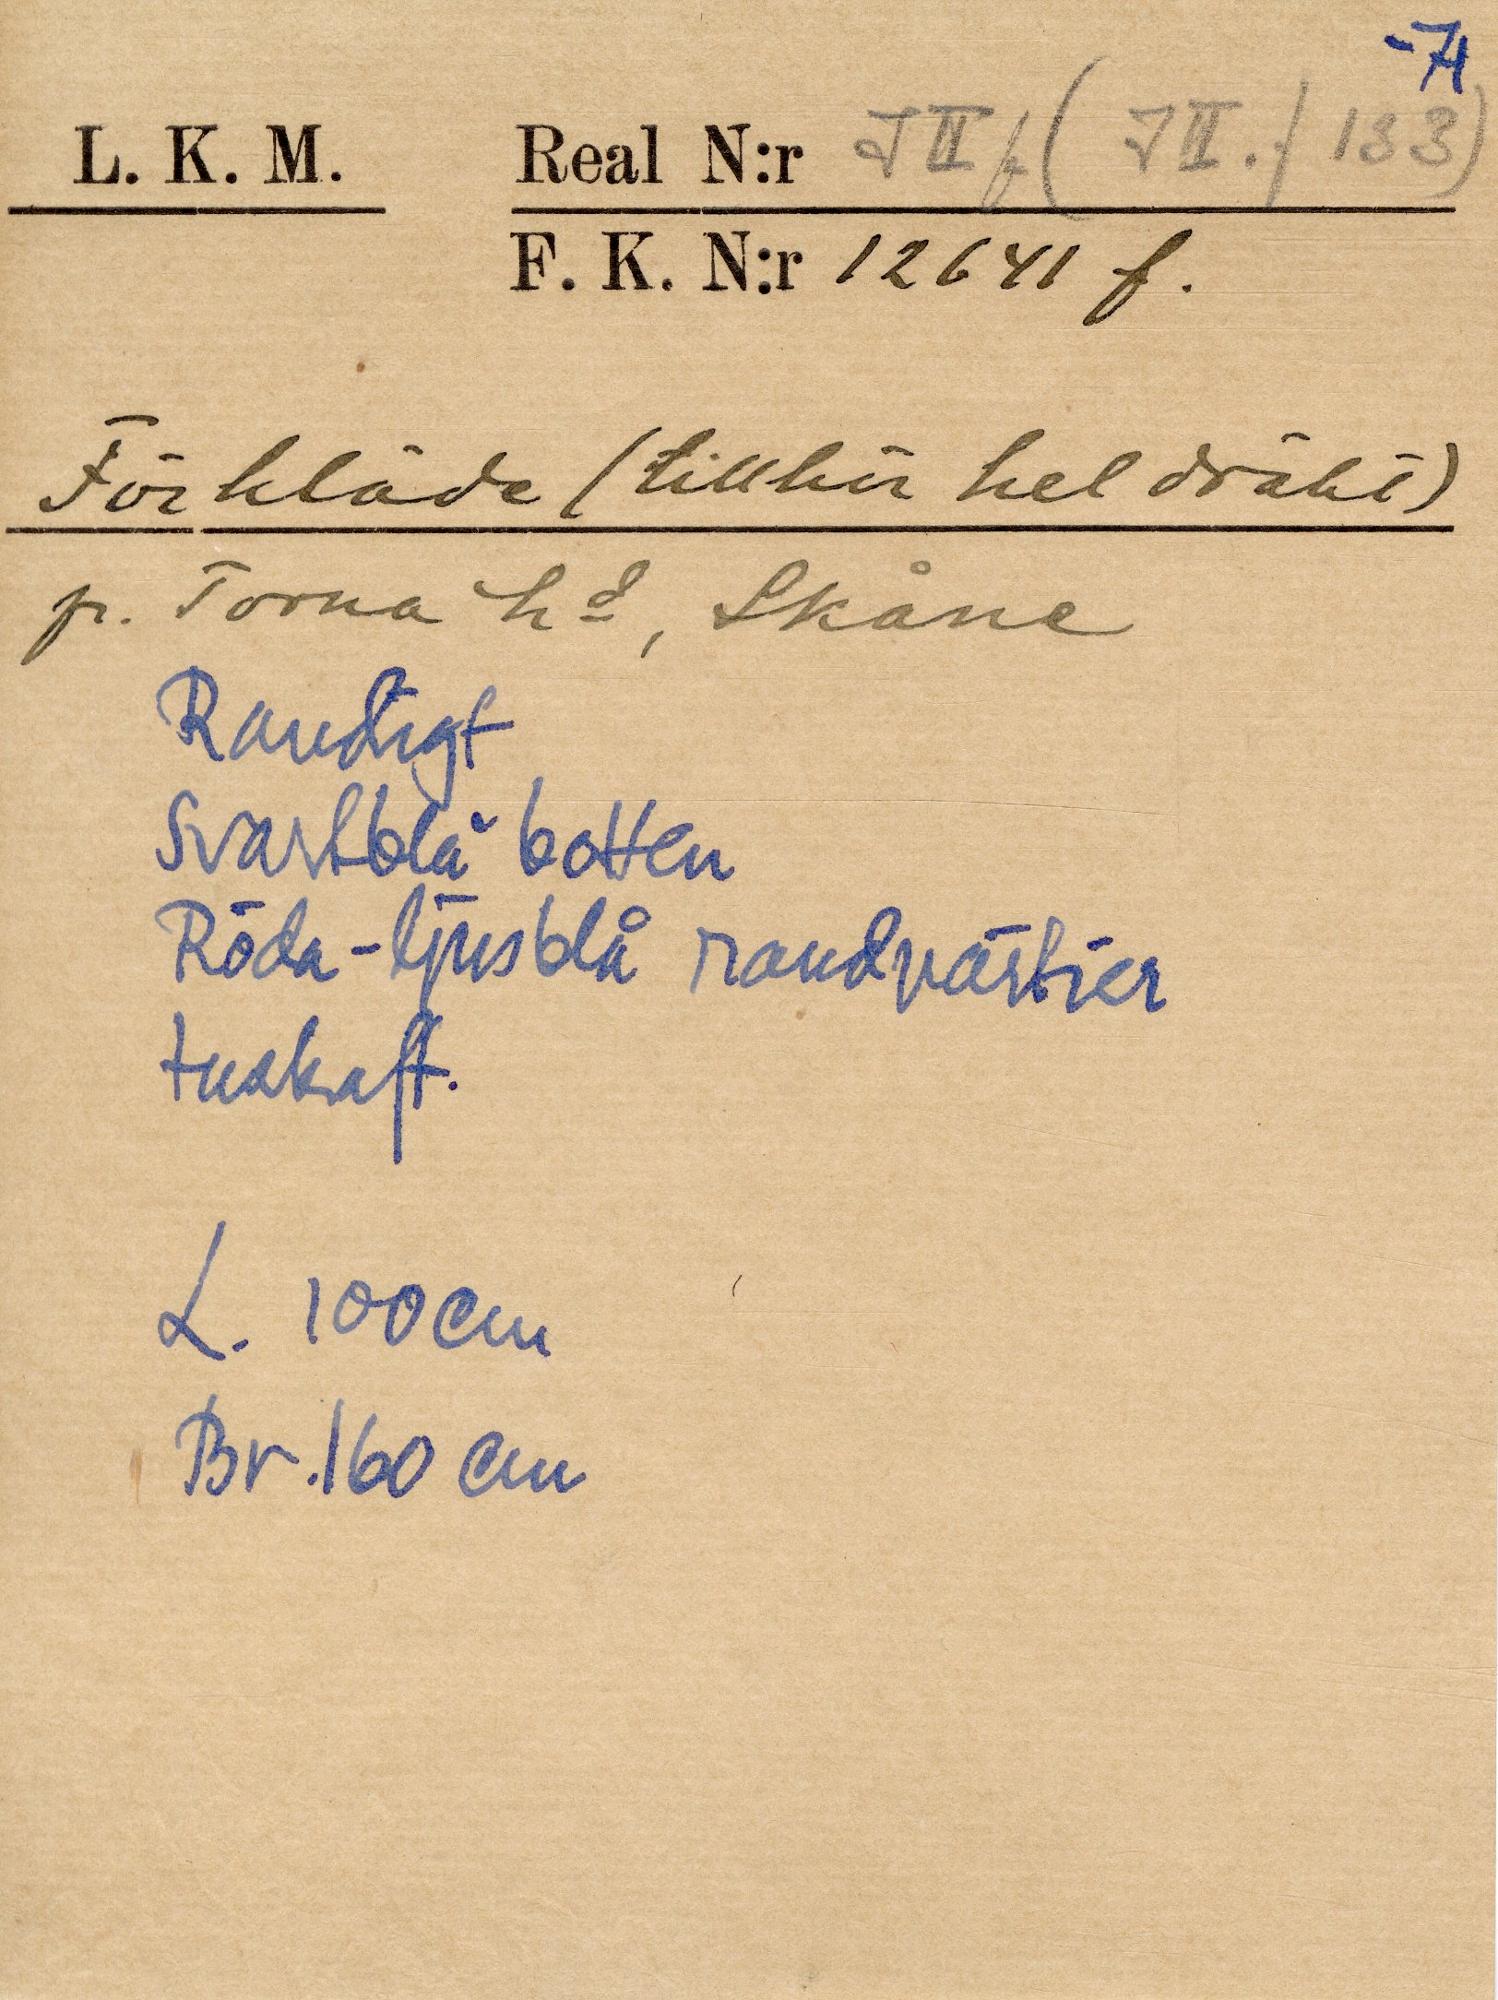 -71
L. K. M. Real N:r J II f ( J II. / 133)
F. K. N:r 12641 f.
Förkläde (tillhör hel dräkt)
fr. Torna hd, Skåne
Randigt
Svartblå botten
Röda-ljusblå randpartier
tuskaft.
L. 100 cm
Br. 160 cm